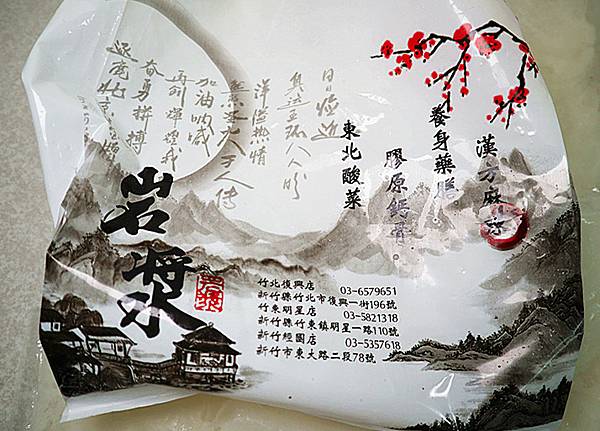 漢方麻辣
養身藥膳
膠原鈣骨。
東北酸菜
日日接近
奧運五環人人盼
洋溢熱情
熊本大王人傳
加油吶喊
再創輝煌我
奮勇拼搏
岩漿
竹北復興店 03-6579651
新竹縣竹北市復興一街196號
竹東明星店 03-5821318
新竹縣竹東鎮明星一路110號
新竹經國店 03-5357618
新竹市東大路二段78號